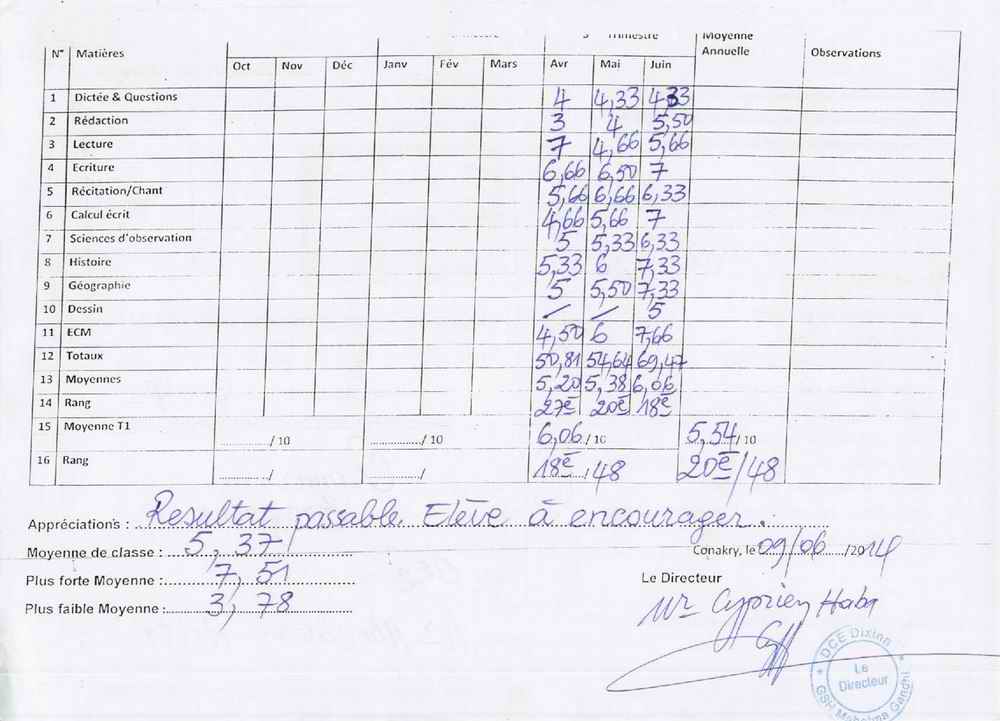 3 Trimestre Moyenne
N° Matières Annuelle Observations
Oct Nov Déc Janv Fév Mars Avr Mai Juin
1 Dictée & Questions 4 4,33 4,33
2 Rédaction 3 4 5,50
3 Lecture 7 4,66 5,66
4 Ecriture 6,66 6,50 7
5 Récitation/Chant 5,66 6,66 6,33
6 Calcul écrit 4,66 5,66 7
7 Sciences d'observation 5 5,33 6,33
8 Histoire 5,33 6 7,33
9 Géographie 5 5,50 7,33
10 Dessin / / 5
11 ECM 4,50 6 7,66
12 Totaux 50,81 54,64 69,47
13 Moyennes 5,20 5,38 6,06
14 Rang 27e 20e 18e
15 Moyenne T1 ............/ 10 ............../ 10 6,06 / 10 5,54/ 10
16 Rang ............../ ............../ 18e..../48 20e/48
Appréciations : Resultat passable. Elève à encourager.
Moyenne de classe : 5,37
Conakry, le 09/06 /2014
Plus forte Moyenne : 7,51
Le Directeur
Plus faible Moyenne : 3,78
Mr Cyprien Haba
* DCE Dixinn *
Le
Directeur
GSH Mahatma Gandhi